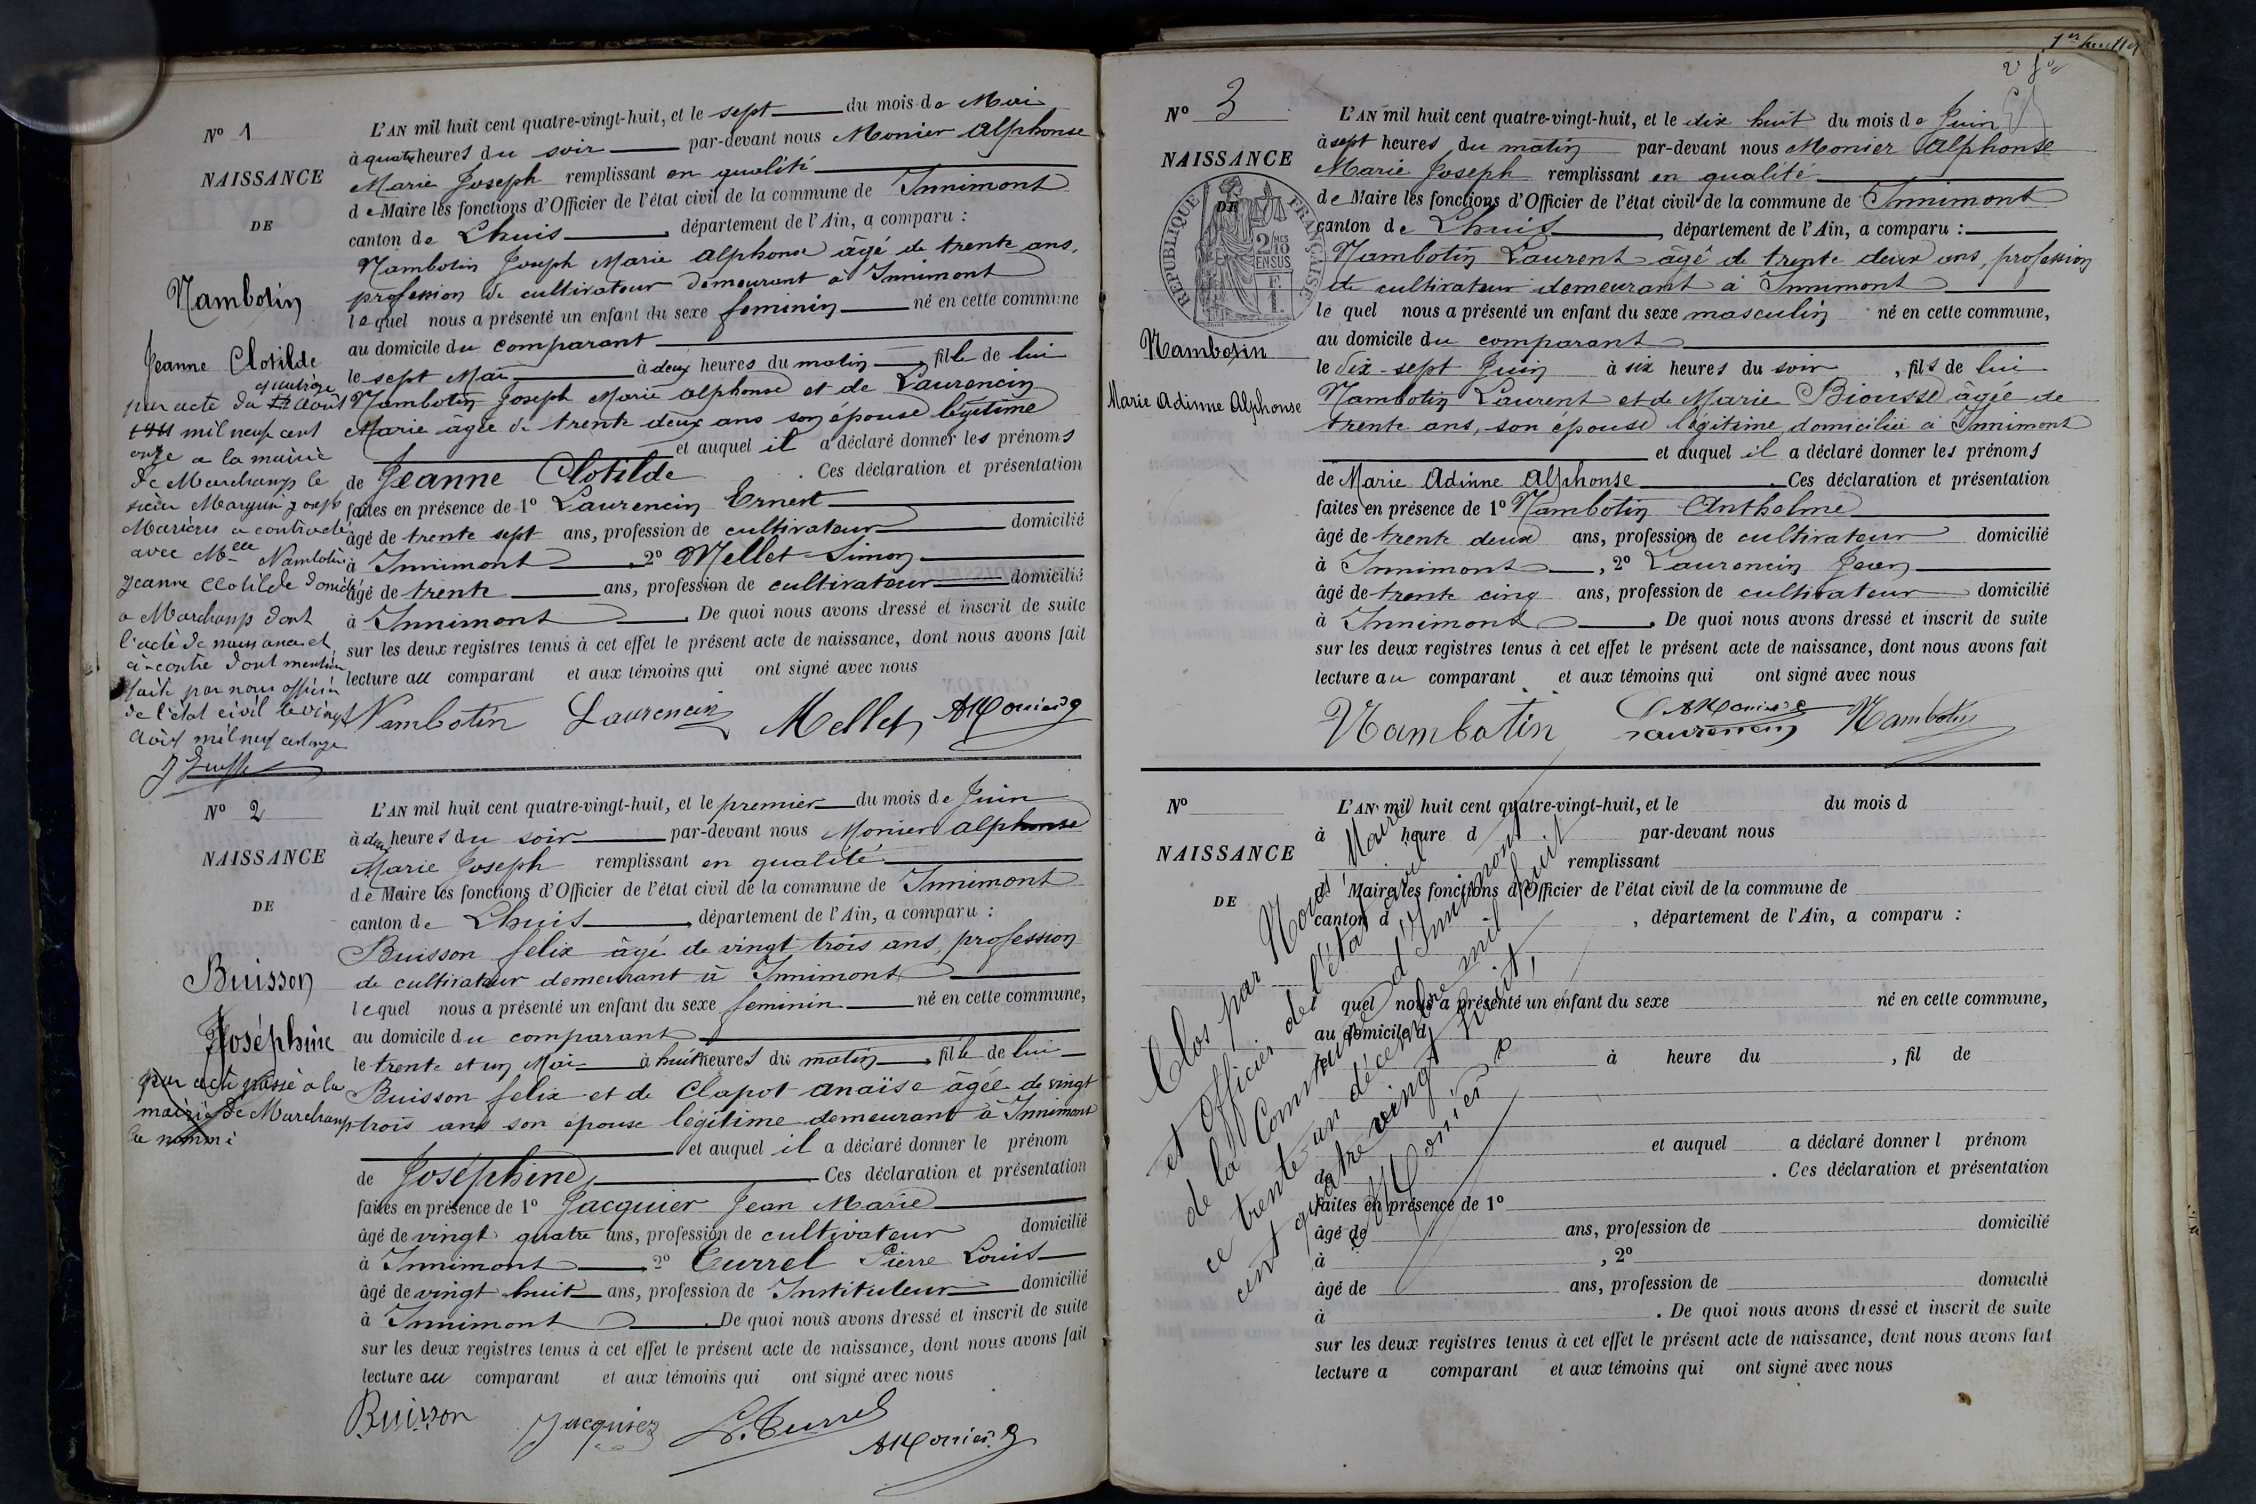 N° 1
NAISSANCE
DE
Nambotin
Jeanne Clotilde
quatorze
par acte du août
1911 mil neuf cent
onze a la mairie
de Marchamp le
sieur Marguin Joseph
Marius a contracté
avec Melle Nambotin
Jeanne Clotilde domicilié
a Marchamp dont
l'acte de naissance est
ci-contre dont mention
faite par nous officier
de l'état civil le vingt
Août mil neuf cent onze
L'AN mil huit cent quatre-vingt-huit, et le sept du mois de Mai
à quatre heures du soir par-devant nous Monier Alphonse
Marie Joseph remplissant en qualité
de Maire les fonctions d'Officier de l'état civil de la commune de Innimont
canton de Lhuis, département de l'Ain, a comparu :
Nambotin Joseph Marie Alphonse âgé de trente ans,
profession de cultivateur demeurant à Innimont
lequel nous a présenté un enfant du sexe feminin né en cette commune
au domicile du comparant
le sept Mai à deux heures du matin, fille de lui
Nambotin Joseph Marie Alphonse et de Laurencin
Marie âgée de trente deux ans son épouse légitime
et auquel il a déclaré donner les prénoms
de Jeanne Clotilde. Ces déclaration et présentation
faites en présence de 1° Laurencin Ernest
âgé de trente sept ans, profession de cultivateur domicilié
à Innimont, 2° Mellet Simon
âgé de trente ans, profession de cultivateur domicilié
à Innimont. De quoi nous avons dressé et inscrit de suite
sur les deux registres tenus à cet effet le présent acte de naissance, dont nous avons fait
lecture au comparant et aux témoins qui ont signé avec nous
Nambotin Laurencin Mellet AMonier
N° 2
NAISSANCE
DE
Buisson
Joséphine
par acte passé a la
mairie de Marchamp
le nommé
L'AN mil huit cent quatre-vingt-huit, et le premier du mois de Juin
à deux heures du soir par-devant nous Monier Alphonse
Marie Joseph remplissant en qualité
de Maire les fonctions d'Officier de l'état civil de la commune de Innimont
canton de Lhuis, département de l'Ain, a comparu :
Buisson felix âgé de vingt trois ans, profession
de cultivateur demeurant à Innimont
lequel nous a présenté un enfant du sexe feminin né en cette commune,
au domicile du comparant
le trente et un Mai à huit heures du matin, fille de lui
Buisson felix et de Clapot anaïse âgée de vingt
trois ans son épouse légitime demeurant à Innimont
et auquel il a déclaré donner le prénom
de Joséphine Ces déclaration et présentation
faites en présence de 1° Jacquier Jean Marie
âgé de vingt quatre ans, profession de cultivateur domicilié
à Innimont, 2° Currel Pierre Louis
âgé de vingt huit ans, profession de Instituteur domicilié
à Innimont. De quoi nous avons dressé et inscrit de suite
sur les deux registres tenus à cet effet le présent acte de naissance, dont nous avons fait
lecture au comparant et aux témoins qui ont signé avec nous
Buisson Jacquier L. Currel
AMonier
1er feuillet
N° 3
NAISSANCE
DE
RÉPUBLIQUE FRANÇAISE
2/10 EN SUS
Nambotin
Marie Adinne Alphonse
L'AN mil huit cent quatre-vingt-huit, et le dix huit du mois de Juin
à sept heures du matin par-devant nous Monier Alphonse
Marie Joseph remplissant en qualité
de Maire les fonctions d'Officier de l'état civil de la commune de Innimont
canton de Lhuis, département de l'Ain, a comparu :
Nambotin Laurent âgé de trente deux ans, profession
de cultivateur demeurant à Innimont
le quel nous a présenté un enfant du sexe masculin né en cette commune,
au domicile du comparant
le dix-sept Juin à six heures du soir, fils de lui
Nambotin Laurent et de Marie Biousse âgée de
trente ans, son épouse légitime domiciliée à Innimont
et auquel il a déclaré donner les prénoms
de Marie Adinne Alphonse. Ces déclaration et présentation
faites en présence de 1° Nambotin Anthelme
âgé de trente deux ans, profession de cultivateur domicilié
à Innimont, 2° Laurencin Jean
âgé de trente cinq ans, profession de cultivateur domicilié
à Innimont. De quoi nous avons dressé et inscrit de suite
sur les deux registres tenus à cet effet le présent acte de naissance, dont nous avons fait
lecture au comparant et aux témoins qui ont signé avec nous
Nambotin AMonier Laurencin Nambotin
N°
NAISSANCE
DE
L'AN mil huit cent quatre-vingt-huit, et le du mois d
à heure d par-devant nous
remplissant
d Maire les fonctions d'Officier de l'état civil de la commune de
canton d, département de l'Ain, a comparu :
quel nous a présenté un enfant du sexe né en cette commune,
au domicile d
le à heure du, fil de
et auquel a déclaré donner l prénom
de. Ces déclaration et présentation
faites en présence de 1°
âgé de ans, profession de domicilié
à, 2°
âgé de ans, profession de domicilié
à. De quoi nous avons dressé et inscrit de suite
sur les deux registres tenus à cet effet le présent acte de naissance, dont nous avons fait
lecture a comparant et aux témoins qui ont signé avec nous
Clos par Nous, Maire
et Officier de l'état civil
de la Commune d'Innimont
ce trente un décembre mil huit
cent quatre vingt huit,
AMonier